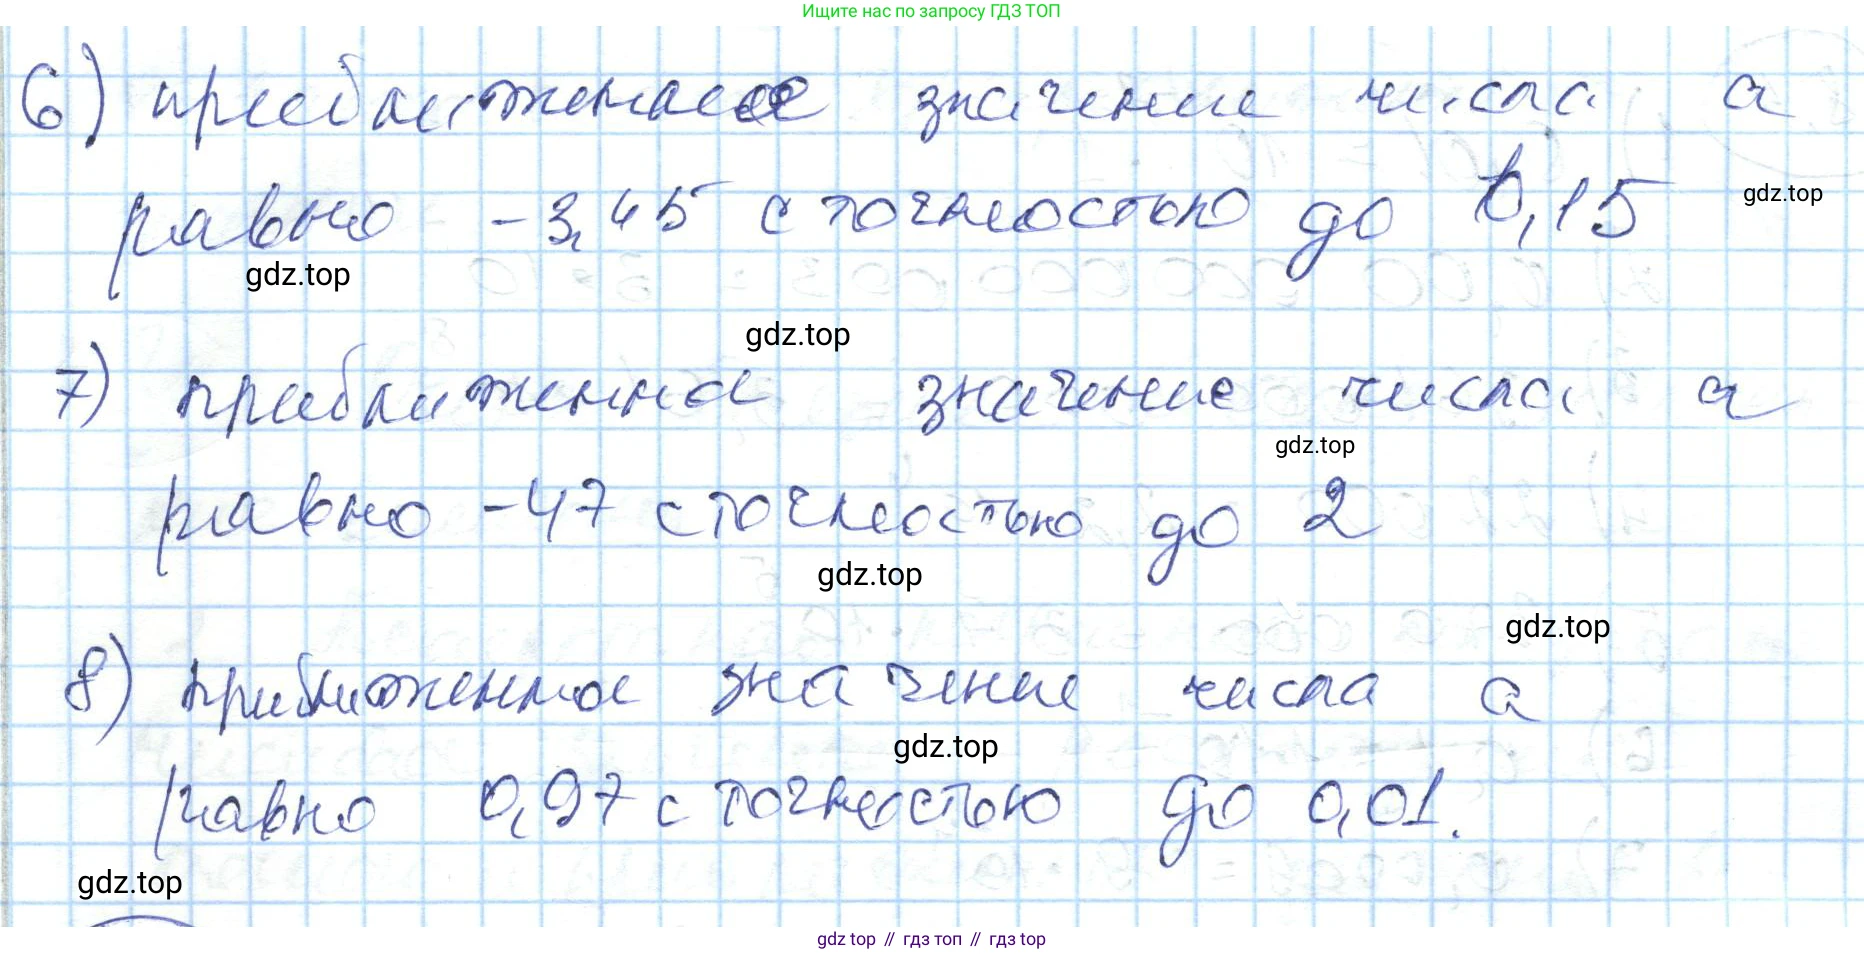 Ищите нас по запросу ГДЗ ТОП
6) приближенное значение числа а
равно -3,45 с точностью до 0,15
gdz.top
gdz.top
gdz.top
7) приближенное значение числа а
gdz.top
равно -47 с точностью до 2
gdz.top
gdz.top
8) приближенное значение числа а
gdz.top
равно 0,97 с точностью до 0,01.
gdz.top
gdz top // гдз топ // гдз top